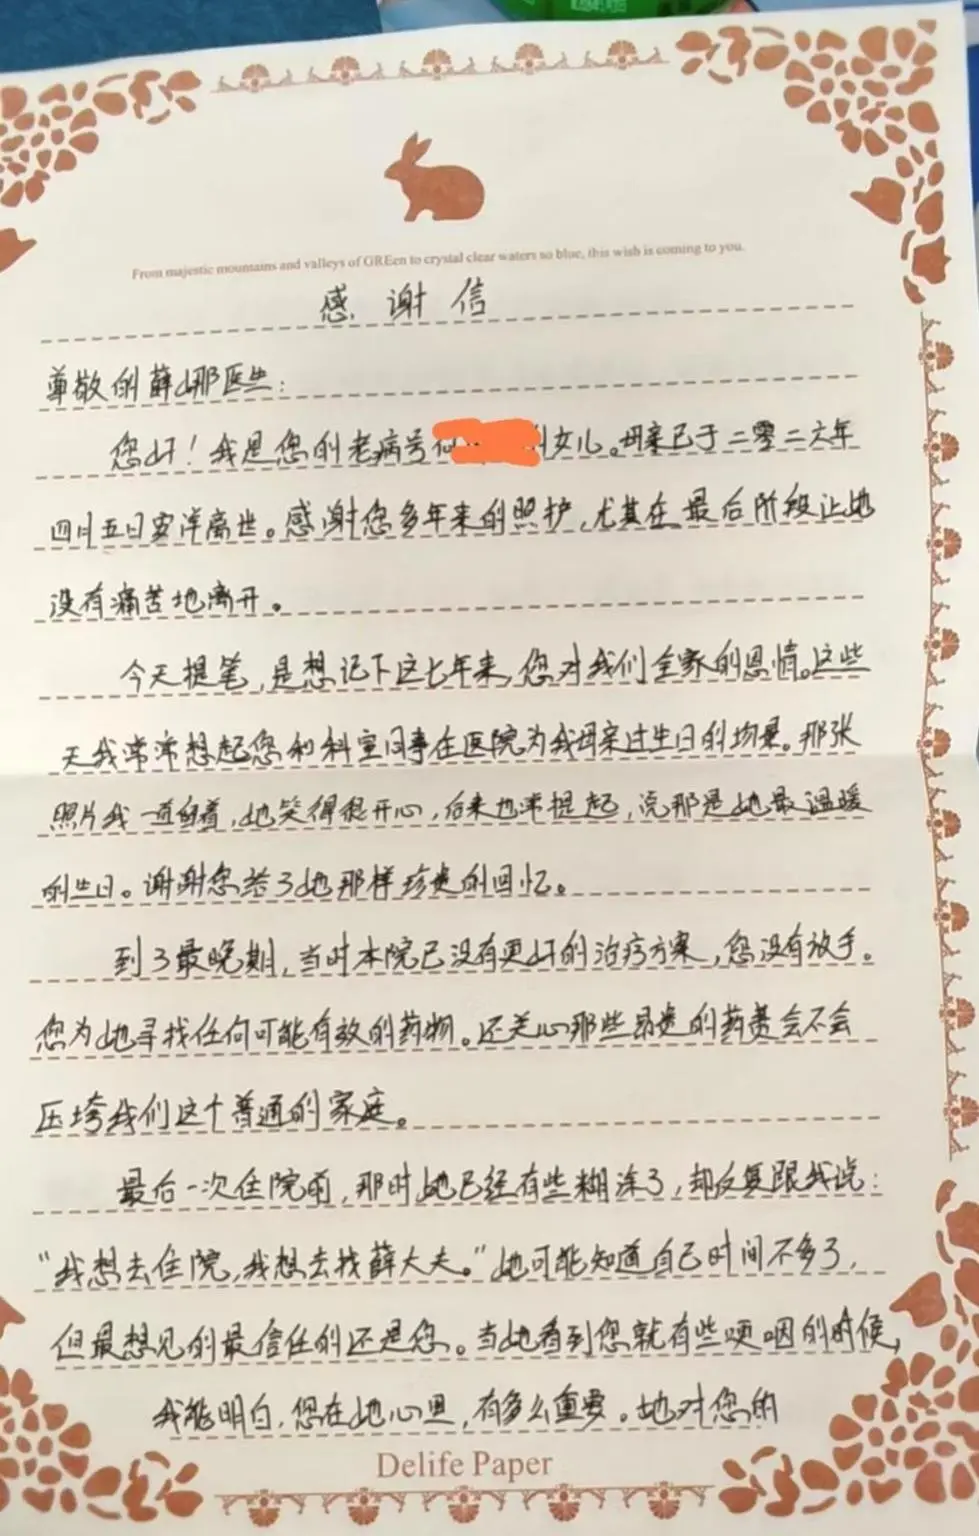 From majestic mountains and valleys of GREen to crystal clear waters so blue, this wish is coming to you.
感谢信
尊敬的薛娜医生：
您好！我是您的老病号何 的女儿。母亲已于二零二六年
四月五日安详离世。感谢您多年来的照护，尤其在最后阶段让她
没有痛苦地离开。
今天提笔，是想记下这七年来，您对我们全家的恩情。这些
天我常常想起您和科室同事在医院为我母亲过生日的场景。那张
照片我一直留着，她笑得很开心，后来也常提起，说那是她最温暖
的生日。谢谢您给了她那样珍贵的回忆。
到了最晚期，当时本院已没有更好的治疗方案，您没有放手。
您为她寻找任何可能有效的药物。还关心那些昂贵的药费会不会
压垮我们这个普通的家庭。
最后一次住院前，那时她已经有些糊涂了，却反复跟我说：
“我想去住院，我想去找薛大夫。”她可能知道自己时间不多了，
但最想见的最信任的还是您。当她看到您就有些哽咽的时候，
我能明白，您在她心里，有多么重要。她对您的
Delife Paper